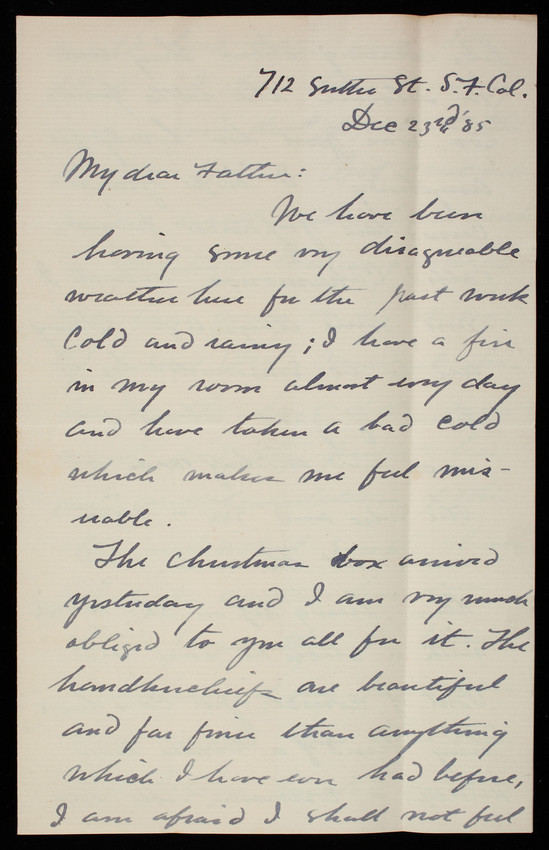 712 Sutter St. S.F. Cal.
Dec 23rd '85
My dear Father:
We have been
having some very disagreeable
weather here for the past week
Cold and rainy; I have a fire
in my room almost every day
and have taken a bad cold
which makes me feel mis-
erable.
The Christmas box arrived
yesterday and I am very much
obliged to you all for it. The
handkerchiefs are beautiful
and far finer than anything
which I have ever had before,
I am afraid I shall not feel